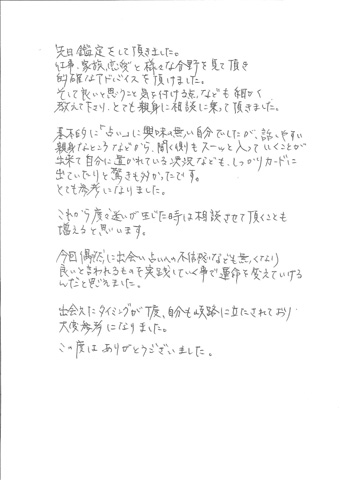 先日鑑定をして頂きました。
仕事、家族、恋愛と様々な分野を見て頂き
的確なアドバイスを頂けました。
そして良いと思うこと気を付ける点なども細かく
教えて下さり、とても親身に相談に乗って頂きました。
基本的に「占い」に興味の無い自分でしたが、話しやすい
親身なところなどから、聞く側もスーッと入っていくことが
出来て自分に置かれている状況なども、しっかりカードに
出ていたりと驚きも多かったです。
とても参考になりました。
これから度々迷いが生じた時は相談させて頂くことも
増えると思います。
今回偶然に出会い占いへの不信感なども無くなり
良いと言われるものを実践していく事で運命を変えていける
んだと思えました。
出会えたタイミングが丁度、自分も岐路に立たされており
大変参考になりました。
この度はありがとうございました。